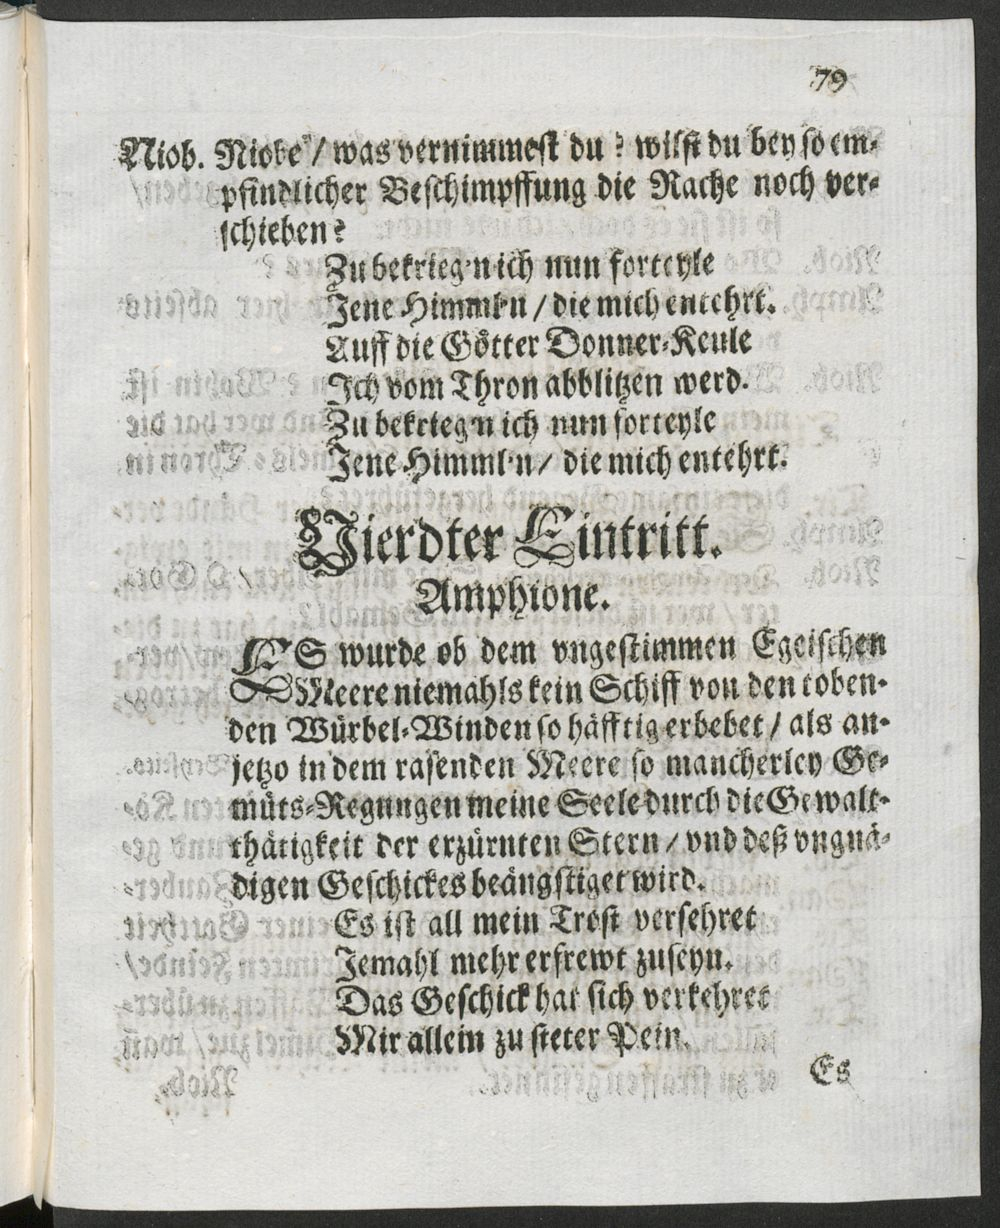 79
Niob. Niobe / was vernimmest du? wilst du bey so em-
pfindlicher Beschimpffung die Rache noch ver-
schieben?
Zu bekrieg'n ich nun forteyle
Jene Himml'n / die mich entehrt.
Auff die Götter Donner-Keule
Jch vom Thron abblitzen werd.
Zu bekrieg'n ich nun forteyle
Jene Himml'n / die mich entehrt.
Vierdter Eintritt.
Amphione.
ES wurde ob dem vngestimmen Egeischen
Meere niemahls kein Schiff von den toben-
den Würbel-Winden so häfftig erbebet / als an-
jetzo in dem rasenden Meere so mancherley Ge-
müts-Regungen meine Seele durch die Gewalt-
thätigkeit der erzürnten Stern / vnd deß vngnä-
digen Geschickes beängstiget wird.
Es ist all mein Trost versehret
Jemahl mehr erfrewt zuseyn.
Das Geschick hat sich verkehret
Mir allein zu steter Pein.
Es